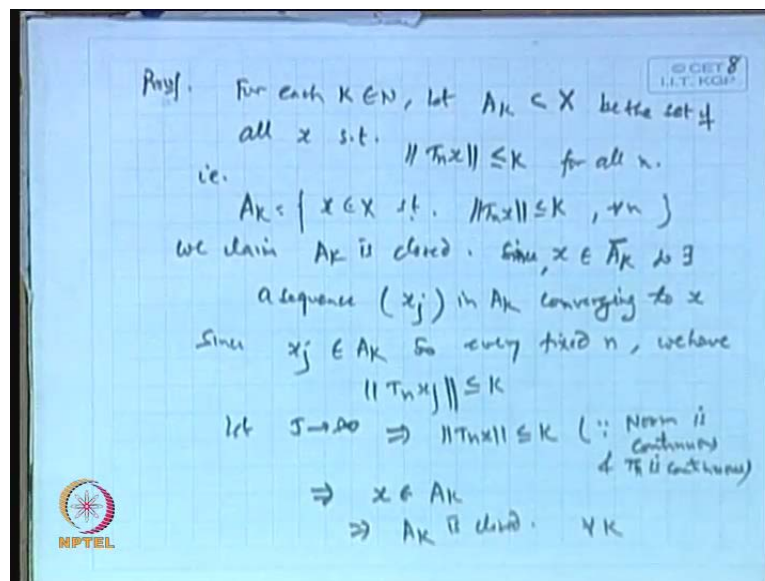 © CET 8
I.I.T. KGP
Proof. For each K ∈ N, let A_K ⊂ X be the set of
all x s.t. ||T_n x|| ≤ K for all n.
i.e.
A_K = { x ∈ X s.t. ||T_n x|| ≤ K , ∀n }
we claim A_K is closed. Since, x ∈ Ā_K so ∃
a sequence (x_j) in A_K converging to x
Since x_j ∈ A_K so every fixed n, we have
||T_n x_j|| ≤ K
let J → ∞ ⇒ ||T_n x|| ≤ K (∵ Norm is
continuous
& T_n is continuous)
⇒ x ∈ A_K
⇒ A_K is closed. ∀K
NPTEL